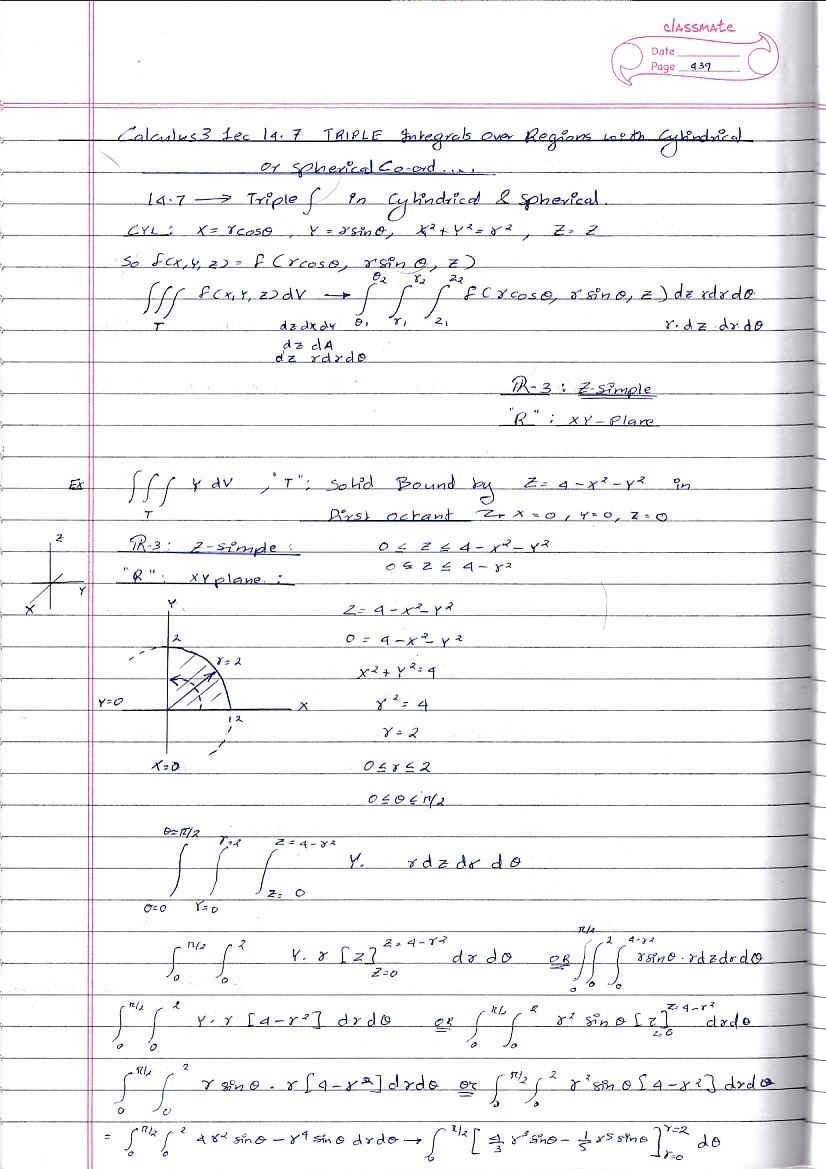 classmate
Date
Page 439
Calculus 3 Lec 14.7 TRIPLE Integrals Over Regions with Cylindrical
or spherical Co-ord.....
14.7 → Triple ∫ in Cylindrical & Spherical.
CYL: X = rcosθ, Y = rsinθ, X²+Y² = r², Z = Z
So f(X,Y,Z) = f(rcosθ, rsinθ, Z)
∭_T f(X,Y,Z)dV → ∫_θ1^θ2 ∫_r1^r2 ∫_z1^z2 f(rcosθ, rsinθ, z) dz rdrdθ
dz dx dy
r·dz·dr·dθ
dz dA
dz rdrdθ
R-3: Z-Simple
"R": XY-Plane
Ex ∭_T Y dV, "T": Solid Bound by Z = 4-X²-Y² in
First octant X=0, Y=0, Z=0
R-3: Z-simple: 0 ≤ Z ≤ 4-X²-Y²
0 ≤ Z ≤ 4-r²
"R": XY plane:
Z
Y
X
Y
2
r=2
Y=0
X
2
X=0
Z = 4-X²-Y²
0 = 4-X²-Y²
X²+Y²=4
r²=4
r=2
0≤r≤2
0≤θ≤π/2
∫_{θ=0}^{θ=π/2} ∫_{r=0}^{r=2} ∫_{Z=0}^{Z=4-r²} Y. rdzdr dθ
∫_0^{π/2} ∫_0^2 Y.r [Z]_{Z=0}^{Z=4-r²} dr dθ OR ∫_0^{π/2} ∫_0^2 ∫_0^{4-r²} rsinθ·rdzdrdθ
∫_0^{π/2} ∫_0^2 Y.r [4-r²] drdθ OR ∫_0^{π/2} ∫_0^2 r² sinθ [Z]_{Z=0}^{Z=4-r²} drdθ
∫_0^{π/2} ∫_0^2 rsinθ·r[4-r²]drdθ Or ∫_0^{π/2} ∫_0^2 r²sinθ[4-r²] drdθ
= ∫_0^{π/2} ∫_0^2 4r² sinθ - r⁴ sinθ drdθ → ∫_0^{π/2} [4/3 r³sinθ - 1/5 r⁵ sinθ]_{r=0}^{r=2} dθ